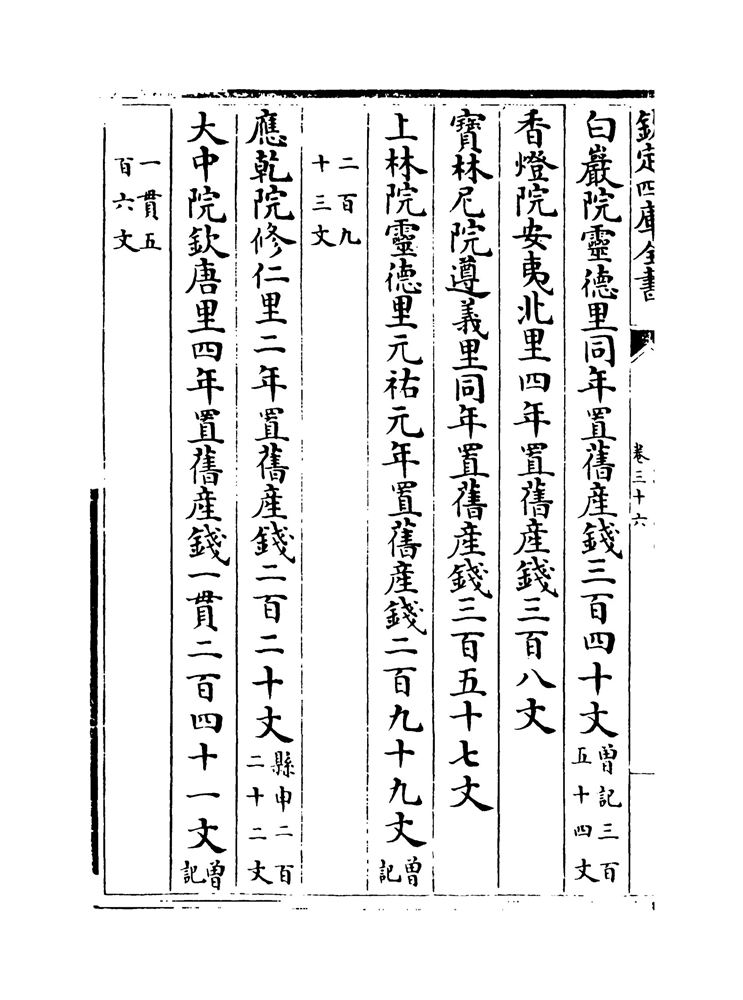 欽定四庫全書
卷三十六
白巖院靈德里同年置舊産錢三百四十文曽記三百五十四文
香燈院安夷北里四年置舊産錢三百八文
寶林尼院遵義里同年置舊産錢三百五十七文
上林院靈德里元祐元年置舊産錢二百九十九文曽記
二百九十三文
應乾院修仁里二年置舊産錢二百二十文縣申二百二十二文
大中院欽唐里四年置舊産錢一貫二百四十一文曽記
一貫五百六文